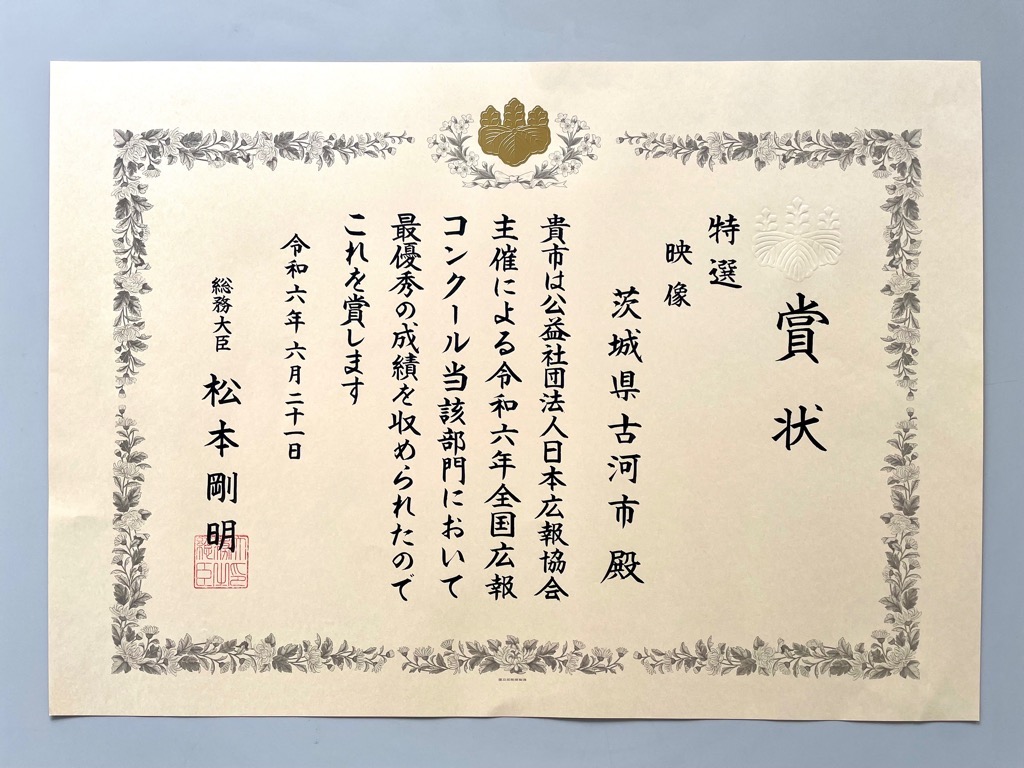 賞状
特選
映像
茨城県古河市殿
貴市は公益社団法人日本広報協会
主催による令和六年全国広報
コンクール当該部門において
最優秀の成績を収められたので
これを賞します
令和六年六月二十一日
総務大臣 松本剛明